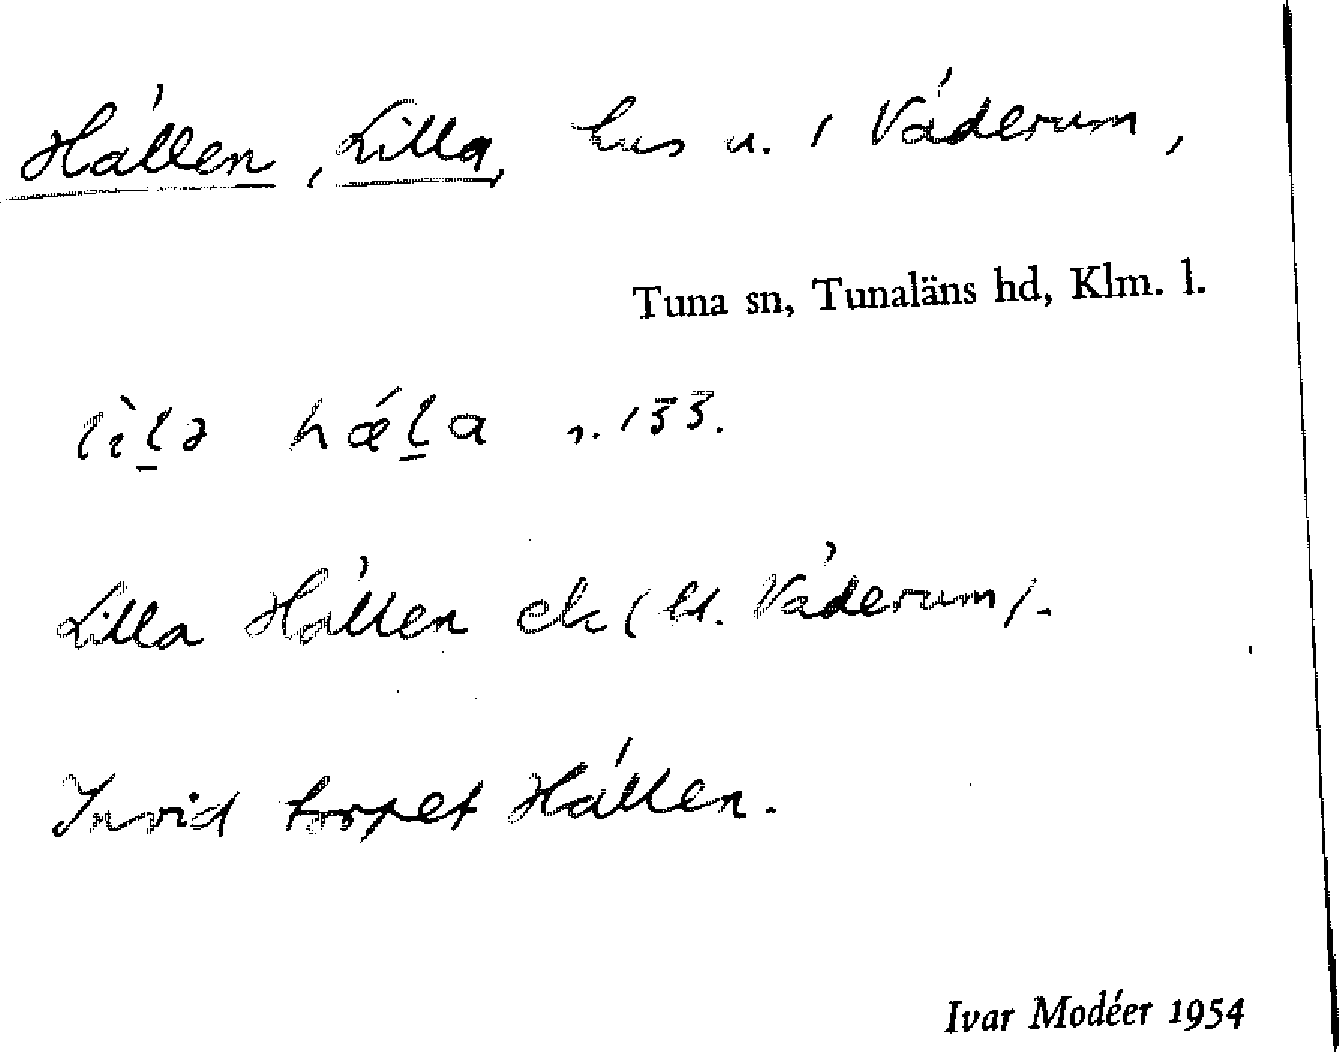 Hällen, Lilla, hus u. i Väderum,
Tuna sn, Tunaläns hd, Klm. l.
lìḻə hǽḻa n. 133.
Lilla Hällen ek (u. Väderum).
Invid torpet Hällen.
Ivar Modéer 1954